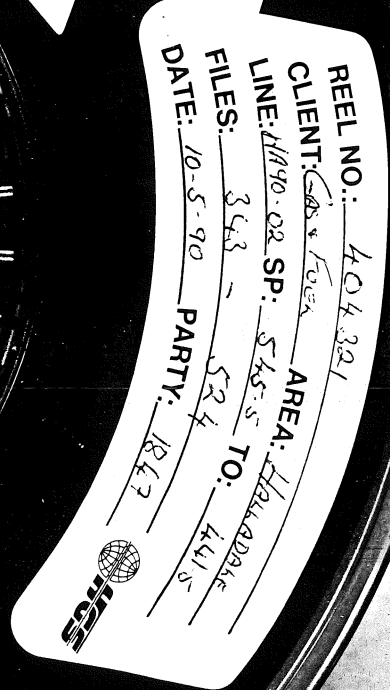 REEL NO.: 404321
CLIENT: GAS & FUEL AREA: HALLADALE
LINE: HA90-02 SP: 545.5 TO: 441.5
FILES: 343 - 524
DATE: 10-5-90 PARTY: 1847
HGS